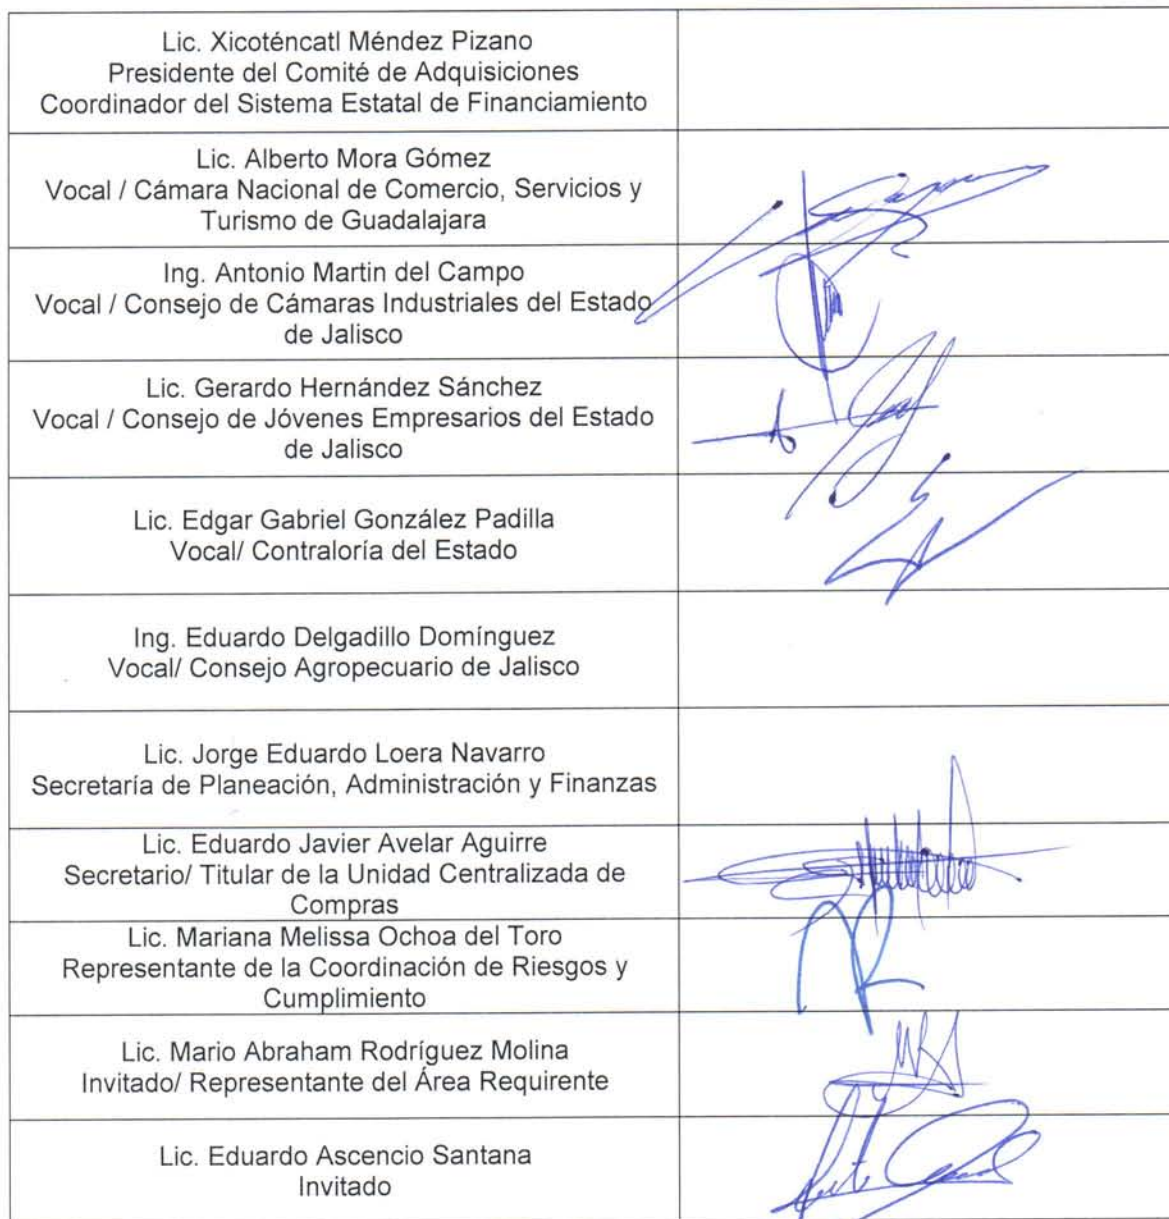 Lic. Xicoténcatl Méndez Pizano
Presidente del Comité de Adquisiciones
Coordinador del Sistema Estatal de Financiamiento
Lic. Alberto Mora Gómez
Vocal / Cámara Nacional de Comercio, Servicios y
Turismo de Guadalajara
Ing. Antonio Martin del Campo
Vocal / Consejo de Cámaras Industriales del Estado
de Jalisco
Lic. Gerardo Hernández Sánchez
Vocal / Consejo de Jóvenes Empresarios del Estado
de Jalisco
Lic. Edgar Gabriel González Padilla
Vocal/ Contraloría del Estado
Ing. Eduardo Delgadillo Domínguez
Vocal/ Consejo Agropecuario de Jalisco
Lic. Jorge Eduardo Loera Navarro
Secretaría de Planeación, Administración y Finanzas
Lic. Eduardo Javier Avelar Aguirre
Secretario/ Titular de la Unidad Centralizada de
Compras
Lic. Mariana Melissa Ochoa del Toro
Representante de la Coordinación de Riesgos y
Cumplimiento
Lic. Mario Abraham Rodríguez Molina
Invitado/ Representante del Área Requirente
Lic. Eduardo Ascencio Santana
Invitado